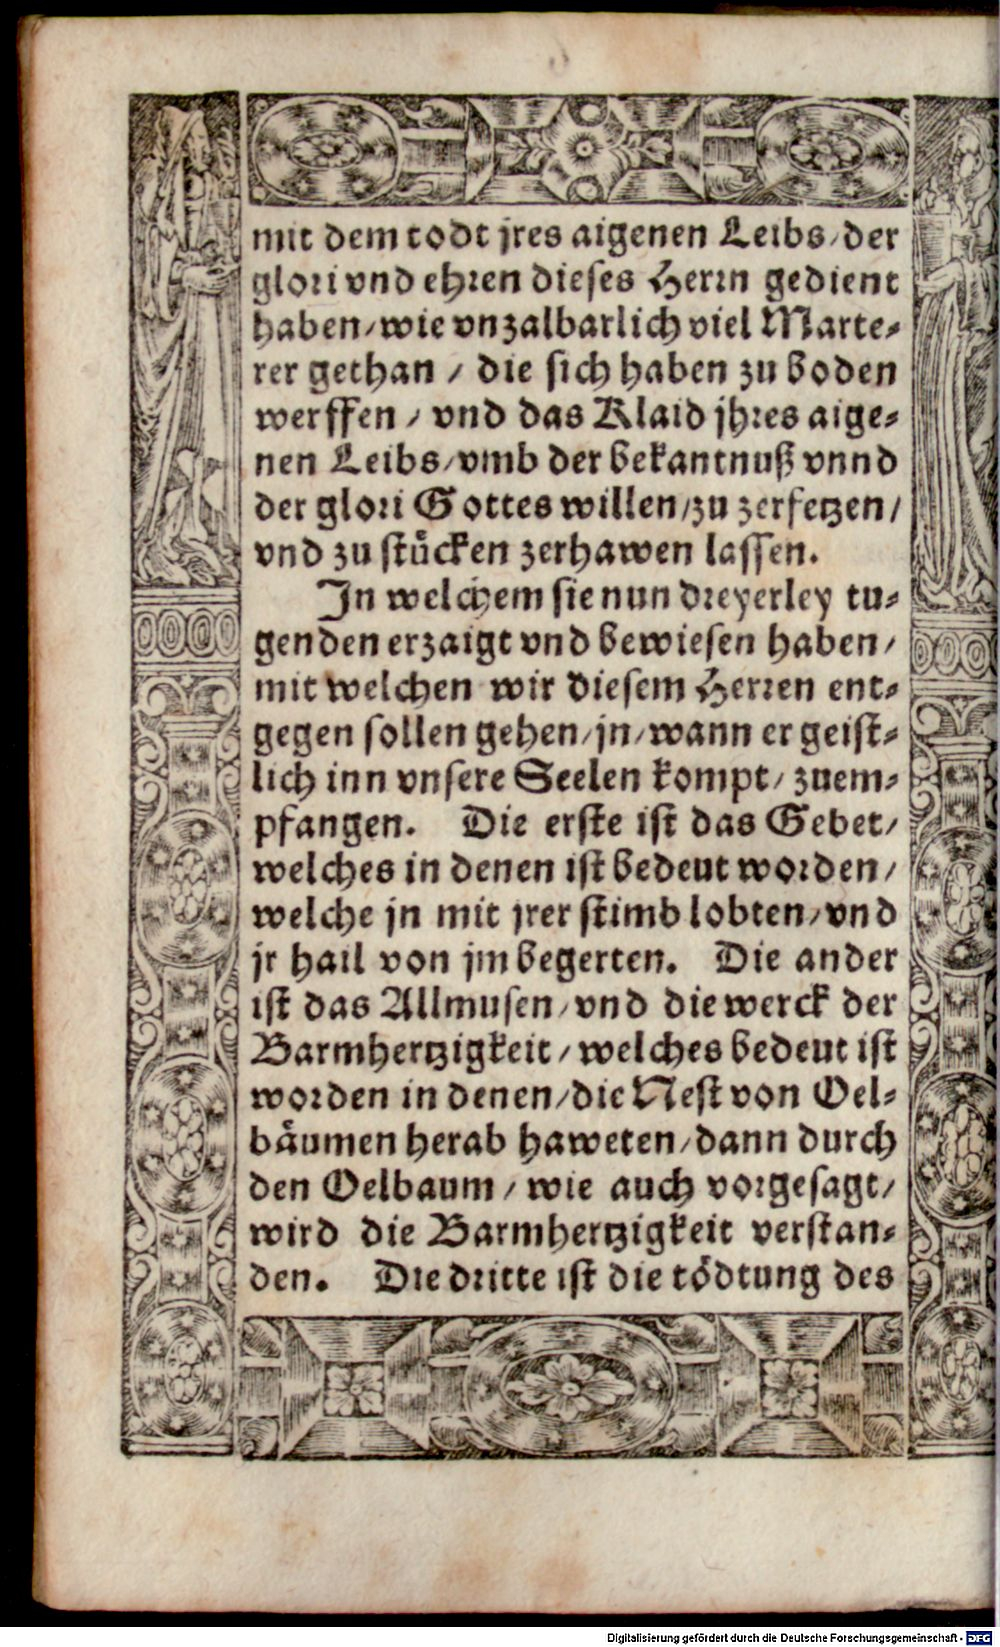 mit dem todt jres aigenen Leibs/der
glori vnd ehren dieses Herrn gedient
haben/wie vnzalbarlich viel Marte-
rer gethan / die sich haben zu boden
werffen / vnd das Klaid jhres aige-
nen Leibs/vmb der bekantnuß vnnd
der glori Gottes willen/zu zerfetzen/
vnd zu stücken zerhawen lassen.
In welchem sie nun dreyerley tu-
genden erzaigt vnd bewiesen haben/
mit welchen wir diesem Herren ent-
gegen sollen gehen/jn/wann er geist-
lich inn vnsere Seelen kompt/ zuem-
pfangen. Die erste ist das Gebet/
welches in denen ist bedeut worden/
welche jn mit jrer stimb lobten/vnd
jr hail von jm begerten. Die ander
ist das Allmusen/vnd die werck der
Barmhertzigkeit/welches bedeut ist
worden in denen/die Nest von Oel-
bäumen herab haweten/dann durch
den Oelbaum / wie auch vorgesagt/
wird die Barmhertzigkeit verstan-
den. Die dritte ist die tödtung des
Digitalisierung gefördert durch die Deutsche Forschungsgemeinschaft - DFG